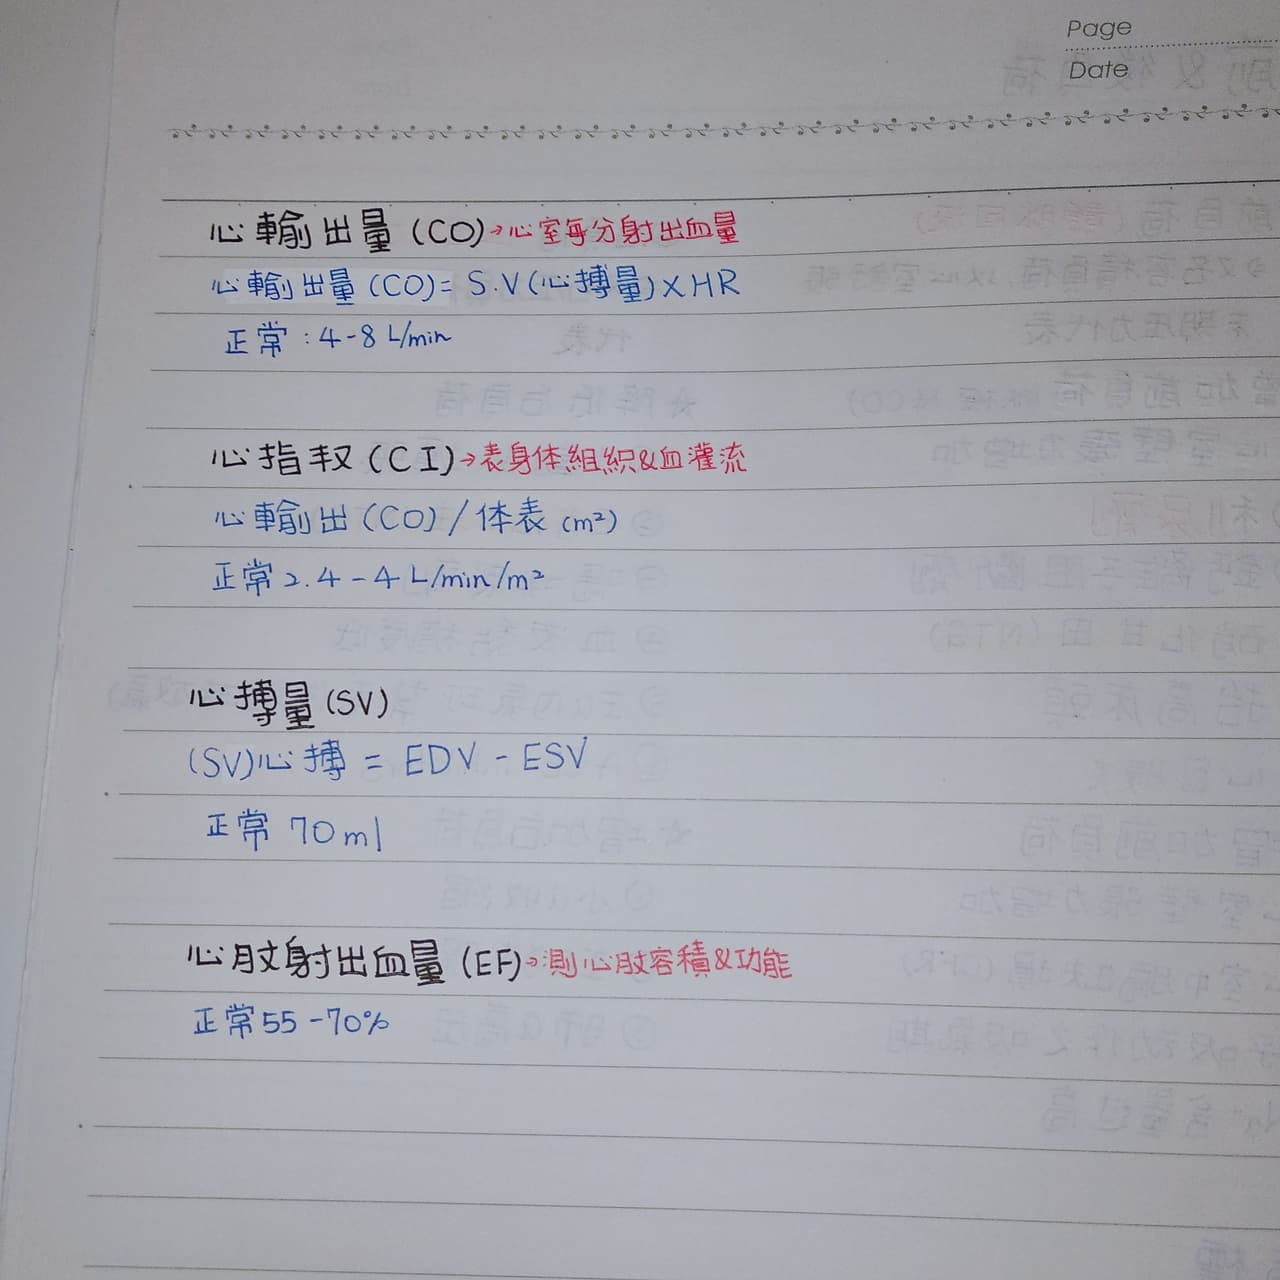 Page
Date
心輸出量(CO)→心室每分射出血量
心輸出量(CO)=S.V(心搏量)×HR
正常:4-8 L/min
心指权(CI)→表身体組織&血灌流
心輸出(CO)/体表(m²)
正常2.4-4 L/min/m²
心搏量(SV)
(SV)心搏 = EDV - ESV
正常 70ml
心肢射出血量(EF)→測心肢容積&功能
正常55-70%